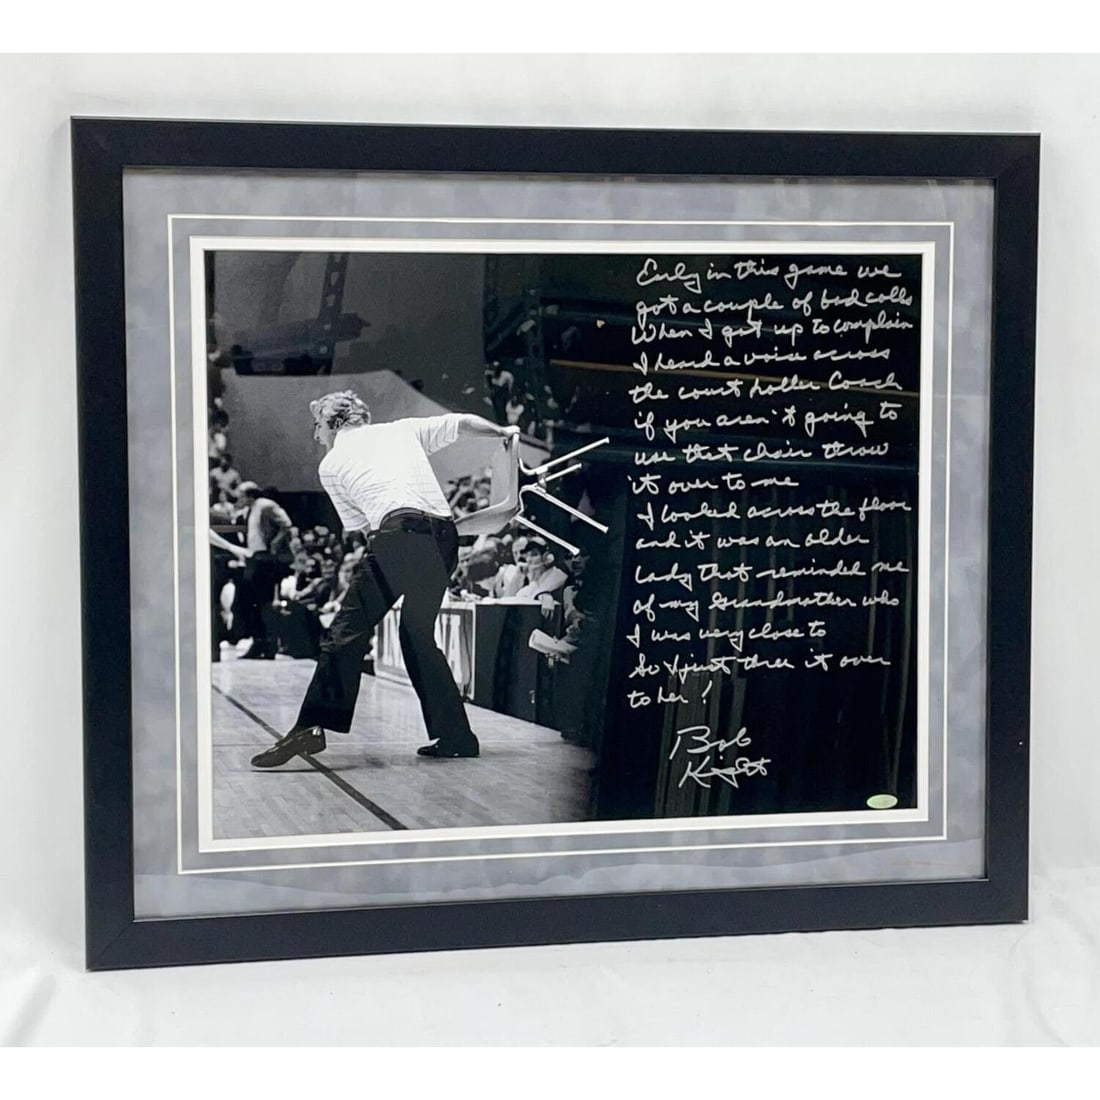 Early in this game we
got a couple of bad calls
When I got up to complain
I heard a voice across
the court holler Coach
if you aren't going to
use that chair throw
it over to me
I looked across the floor
and it was an older
lady that reminded me
of my Grandmother who
I was very close to
So I just threw it over
to her!
Bob
Knight